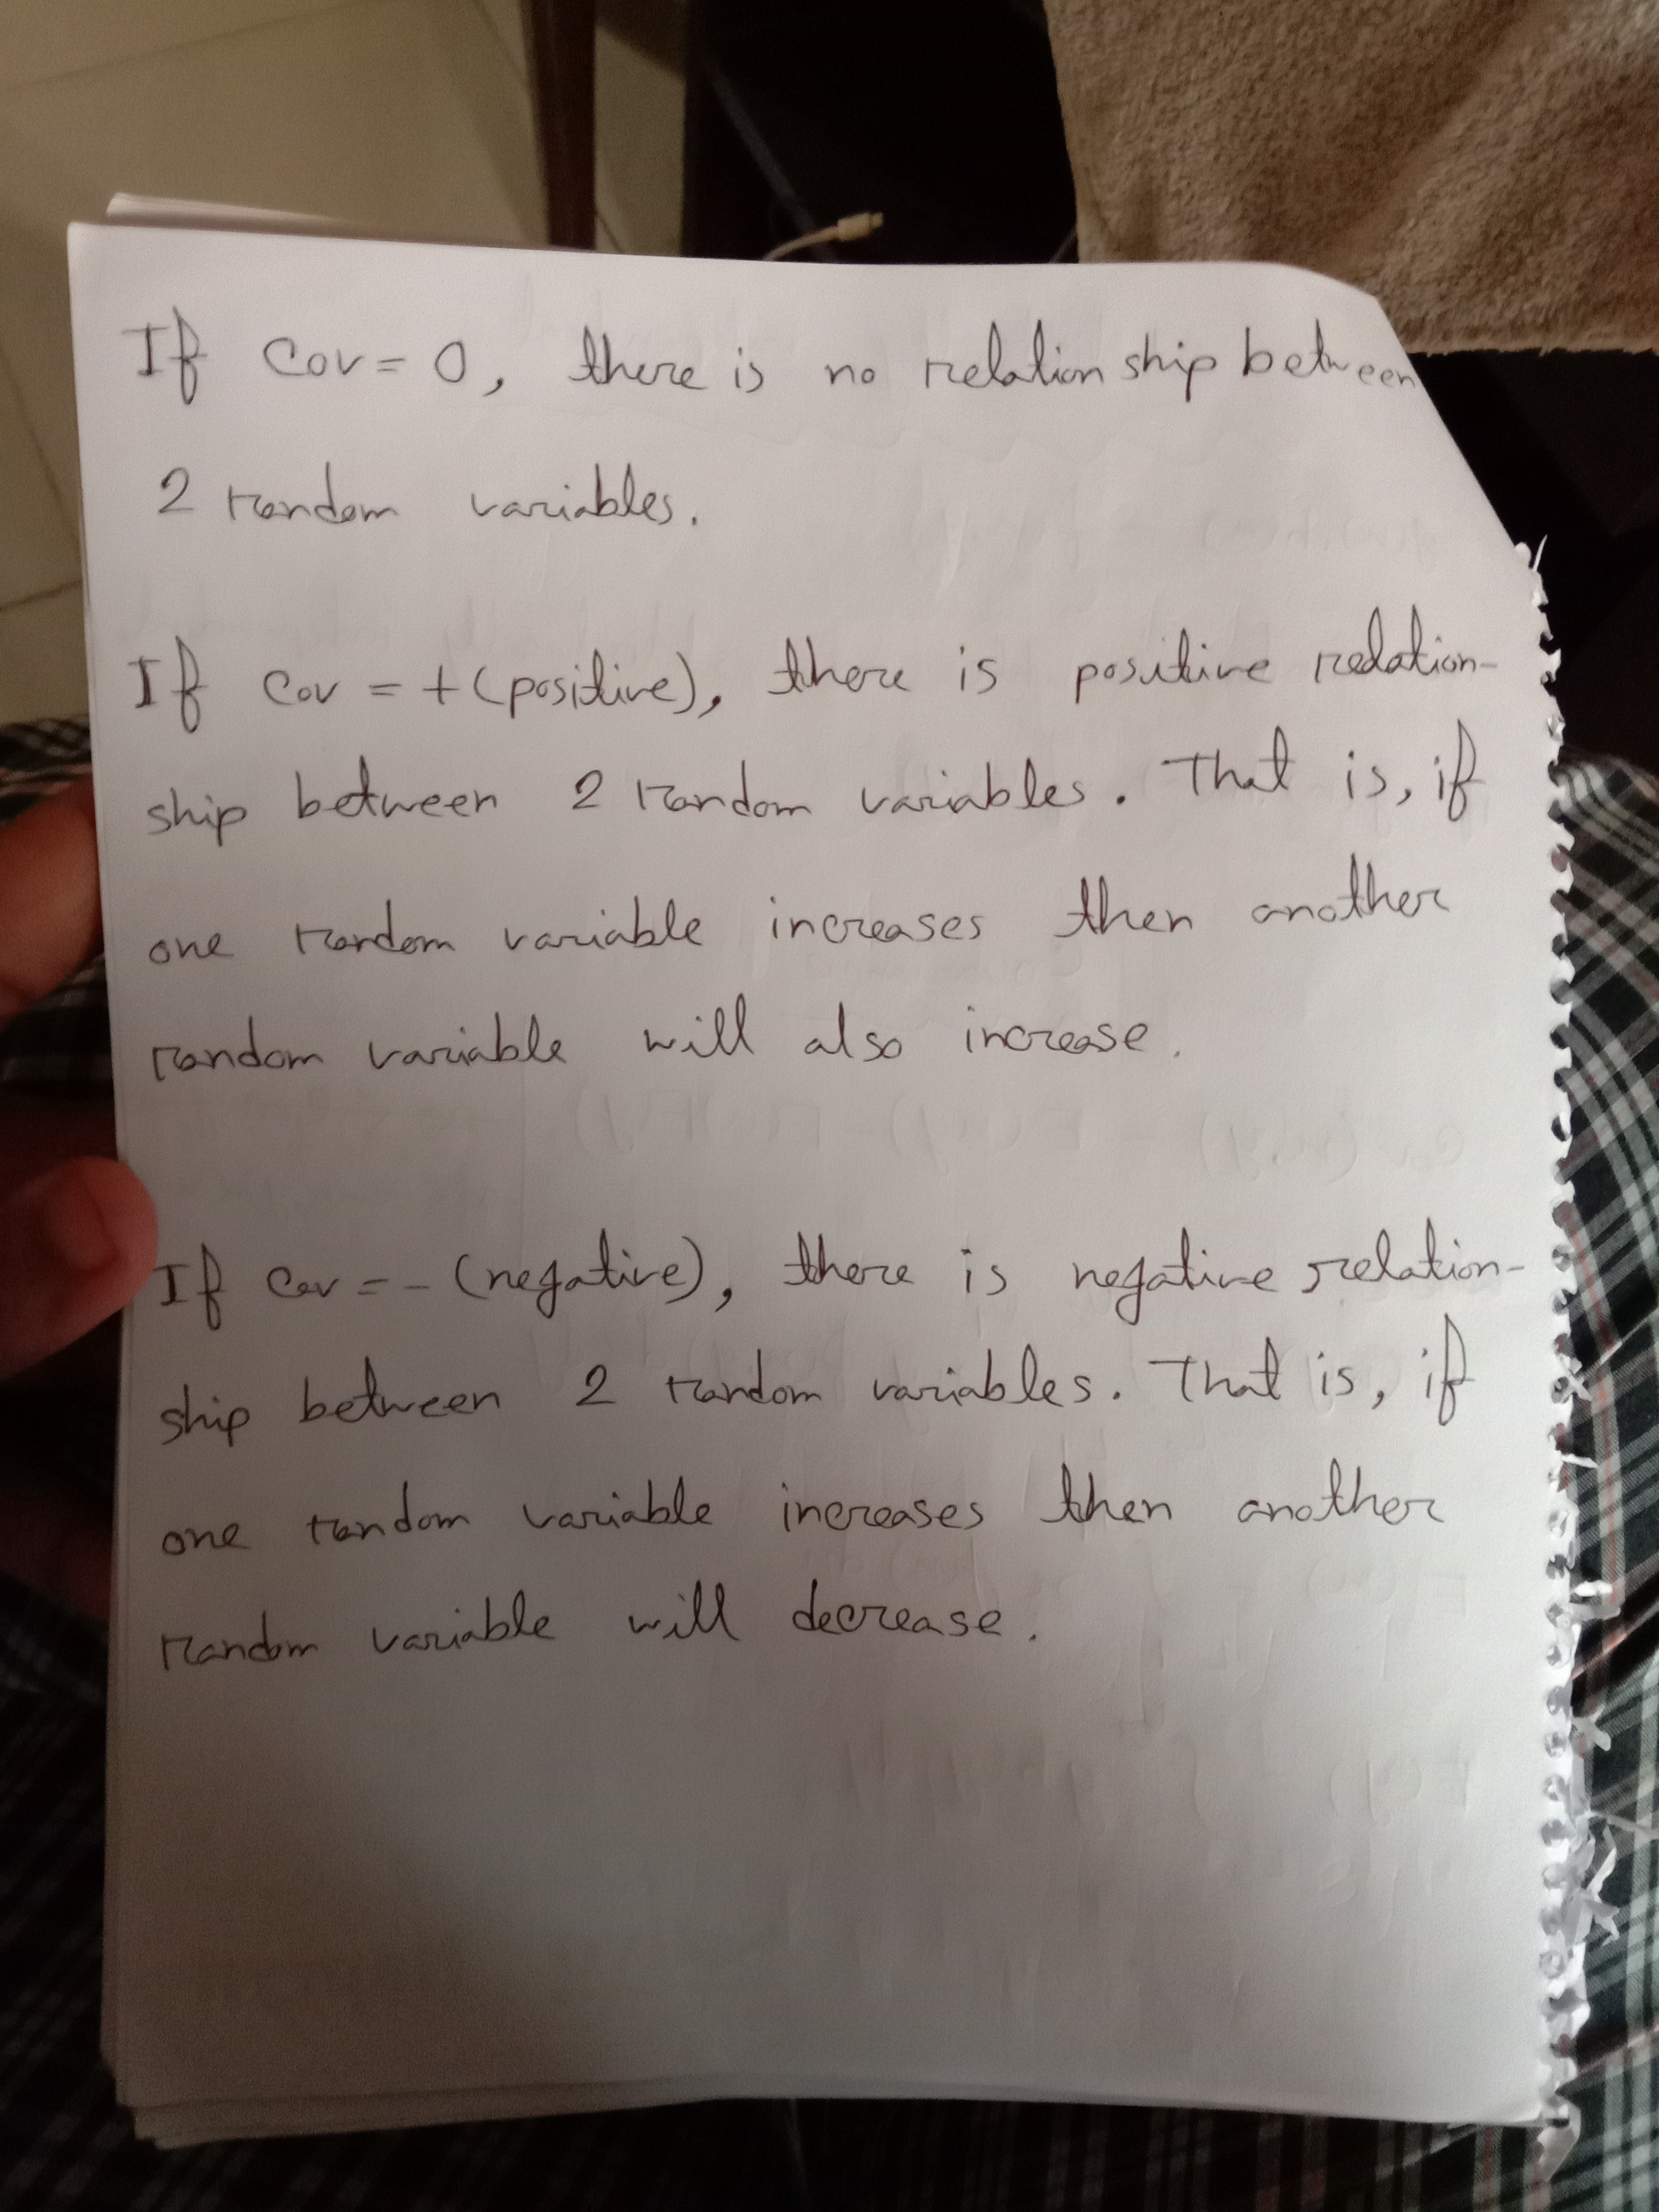 If Cov = 0, there is no relationship between
2 random variables.
If Cov = + (positive), there is positive relation-
ship between 2 random variables. That is, if
one random variable increases then another
random variable will also increase.
If Cov = - (negative), there is negative relation-
ship between 2 random variables. That is, if
one random variable increases then another
random variable will decrease.